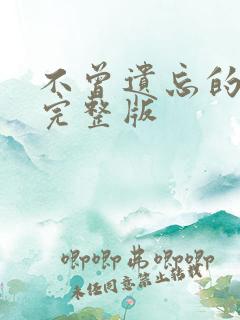 不曾遗忘的
完整版
唧唧帛唧唧
未经同意禁止转载